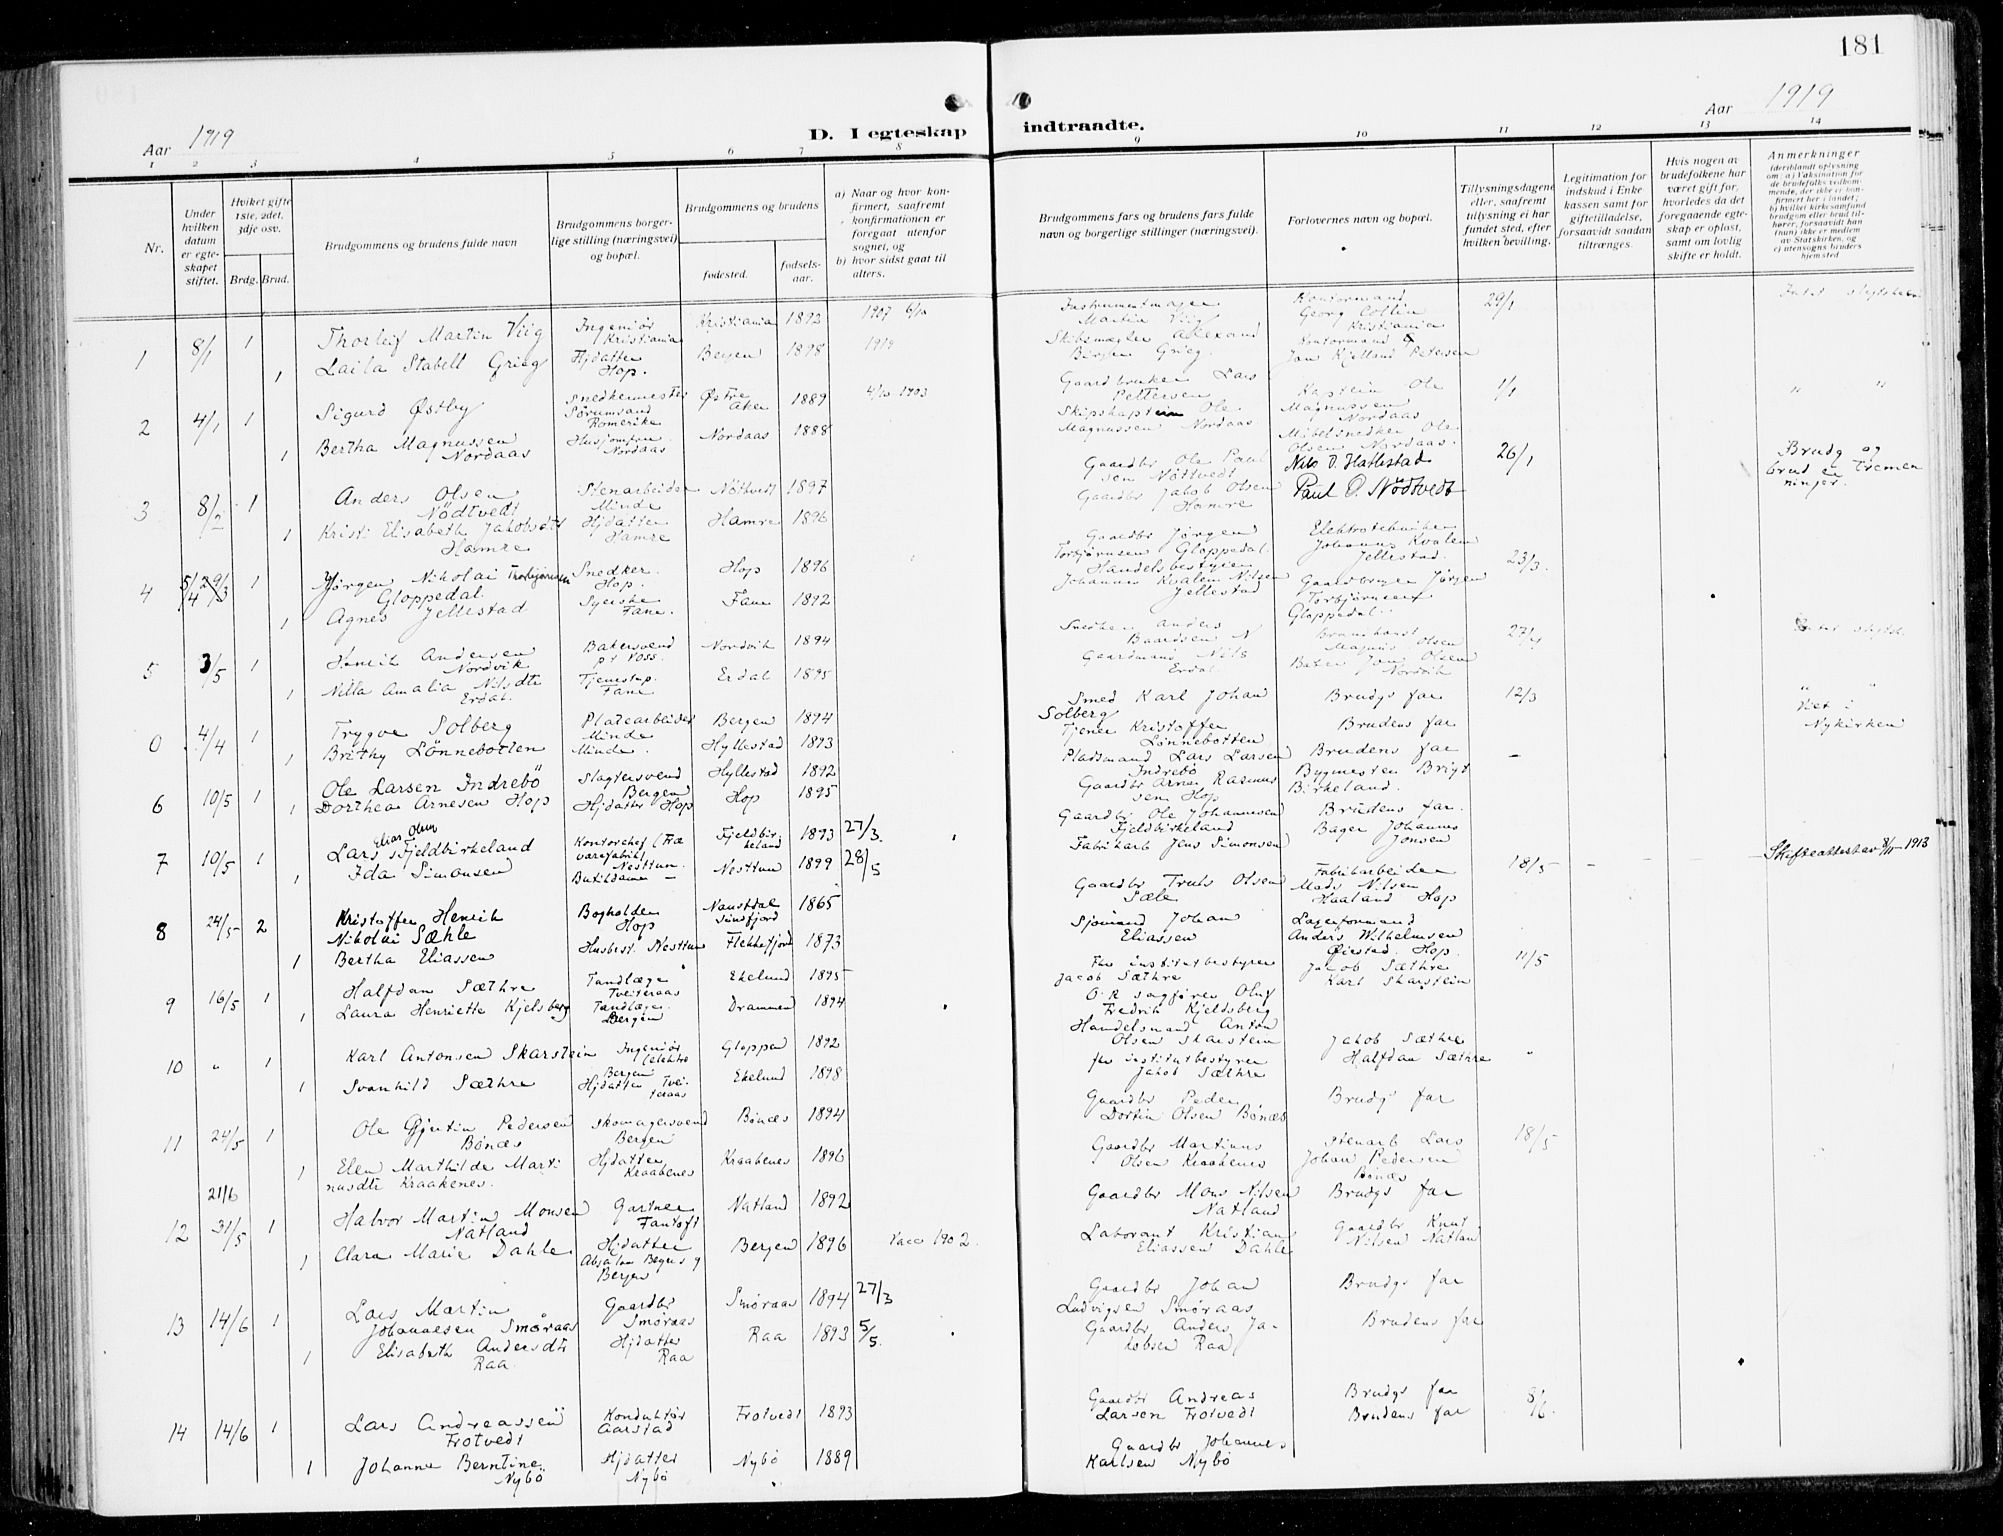 181
Aar 1919
D. I egteskap indtraadte.
Aar 1919
1 2 3 4 5 6 7 8 9 10 11 12 13 14
Nr.
Under hvilken datum er egteskapet stiftet.
Hviket gifte 1ste, 2det, 3dje osv.
Brdg. Brud.
Brudgommens og brudens fulde navn
Brudgommens borgerlige stilling (næringsvei) og bopæl.
Brudgommens og brudens
fødested.
fødselsaar.
a) Naar og hvor konfirmert, saafremt konfirmationen er foregaat utenfor sognet, og
b) hvor sidst gaat til alters.
Brudgommens fars og brudens fars fulde navn og borgerlige stillinger (næringsvei).
Forlovernes navn og bopæl.
Tillysningsdagene eller, saafremt tillysning ei har fundet sted, efter hvilken bevilling.
Legitimation for indskud i Enkekassen samt for giftetilladelse, forsaavidt saadan tiltrænges.
Hvis nogen av brudefolkene har været gift før, hvorledes da det foregaaende egteskap er opløst, samt om lovlig skifte er holdt.
Anmerkninger
(deriblandt oplysning om: a) Vaksination for de brudefolks vedkommende, der ikke er konfirmert her i landet; b) hvilket kirkesamfund brudgom eller brud tilhører, forsaavidt han (hun) ikke er medlem av Statskirken, og c) utensogns bruders hjemsted
1 8/1 1 Thorleif Martin Viig Ingeniør Kristiania Kristiania 1892 1907 6/10 Instrumentmager Martin Viig Kontormand Georg Collin Kristiania 29/1
1 Laila Stabell Grieg Hjdatter Hop. Bergen 1898 Skibsmægler Alexand Berger Grieg. Kontormand Jon Kjelland Petersen
2 4/1 1 Sigurd Østby Snedkermester Sørumsand Romerike Østre Aker 1889 4/10 1903 Gaardbruker Lars Pettersen Kaptein Ole Magnussen Nordaas 1/1 " "
1 Bertha Magnussen Nordaas Husjomfru Nordaas Nordaas 1888 Skipskaptein Ole Magnussen Nordaas Møbelsnedker Ole Olsen Nordaas.
3 8/2 1 Anders Olsen Nödtvedt Stenarbeider Minde Nöttvedt 1897 Gaardbr Ole Paulsen Nöttvedt Nils O. Hatlestad 26/1 Brudg og brud er
1 Kristi Elisabeth Jakobsdtr Hamre Hjdatter Hamre Hamre 1896 Gaardbr Jakob Olsen Hamre Paul O. Nödtvedt
4 5/4 29/3 1 Jørgen Nikolai Thorbjørnsen Gloppedal Snedker Hop. Hop 1896 Gaardbr Jørgen Torbjørnsen Gloppedal. Johannes Kvalem Jellestad. 23/3.
1 Agnes Jellestad Syerske Fane. Fane 1892 Handelsbestyrer Johannes Kvalem Nilsen Jellestad Gaardbruger Jørgen Torbjørnsen Gloppedal.
5 3/5 1 Henrik Andersen Nordvik Bakersvend pt Voss. Nordvik 1894 Snedker Anders Baardsen N Magnus Olsen 27/4
1 Nilla Amalia Nilsdtr Erdal. Fane Erdal 1895 Gaardmand Nils Erdal Baker Jon Olsen Nordvik
0 4/4 1 Trygve Solberg Platearbeider Minde Bergen 1894 Smed Karl Johan Solberg Brudgs far 12/3 " Viet i Nykirken
1 Brithy Lønnebotten Minde. Hyllestad 1893 Tjener Kristoffer Lønnebotten Brudens far
6 10/5 1 Ole Larsen Indrebö Slagtersvend Bergen Hyllestad 1892 Pladsmand Lars Larsen Indrebö Brudens far –
1 Dorthea Arnesen Hop Hjdatter Hop Hop 1895 Gaardbr Arne Rasmussen Hop Bygmester Brigt Birkeland.
7 10/5 1 Lars Elias Olsen Fjeldbirkeland Kontorchef (Trævarefabrik) Nesttun. Fjeldbirkeland 1893 27/3. Gaardbr Ole Johannesen Fjeldbirkeland Brudens far.
1 Ida Simonsen Butikdame – Nesttun 1899 28/5 Fabrikarb Jens Simonsen Bager Johannes Jonsen
8 24/5 2 Kristoffer Henrik Nikolai Sæhle Bogholder Hop Naustdal Søndfjord 1865 Gaardbr Truls Olsen Sæle Fabrikarbeider Mads Nilsen Haaland Hop 18/5 – – – Skifteattest av 8/11 1913
1 Bertha Eliassen Husbest. Nesttun Flekkefjord 1873 Sjømand Johan Eliassen Lagerformand Anders Wilhelmsen Øiestad. Hop.
9 16/5 1 Halfdan Sæthre Tandlæge Tveiteraas Ekelund 1895 Fhv institutbestyrer Jacob Sæthre Jacob Sæthre Karl Skarstein 11/5
1 Laura Henriette Kjelsberg Tandlæge. Bergen Drammen 1894 O.R sagfører Oluf Fredrik Kjeldsberg
10 " 1 Karl Antonsen Skarstein Ingeniør (elektro Bergen Gloppen 1892 Handelsmand Anton Olsen Skarstein Jakob Sæthre "
1 Svanhild Sæthre Hjdatter Tveiteraas Ekelund 1898 fhv institutbestyrer Jakob Sæthre Halfdan Sæthre
11 24/5 1 Ole Gjertin Pedersen Bönæs Skomagersvend Bergen Bönæs 1894 Gaardbr Peder Dortin Olsen Bönæs Brudgs far
1 Elen Marthilde Martinusdtr Kraakenes. Hjdatter Kraakenes Kraakenes 1896 Gaardbr Martinus Olsen Kraakenes Stenarb Lars Johan Pedersen Bönæs 18/5
12 21/6 31/5 1 Halvor Martin Monsen Natland Gartner Fantoft Natland 1892 Gaardbr Mons Nilsen Natland Brudgs far
1 Clara Marie Dahle Hjdatter Absalon Beyers g Bergen Bergen 1896 Vacc 1902. Laborant Kristian Eliassen Dahle Gaardbr Knut Nilsen Natland
13 14/6 1 Lars Martin Johannesen Smøraas Gaardbr Smøraas Smøraas 1894 27/3 Gaardbr Johan Ludvigsen Smøraas Brudgs far
1 Elisabeth Andersdtr Raa. Hjdatter Raa Raa 1893 5/5. Gaardbr Anders Jakobsen Raa Brudens far
14 14/6 1 Lars Andreassen Frotvedt Konduktør Aarstad Frotvedt 1893 Gaardbr Andreas Larsen Frotvedt Brudgs far 8/6.
1 Johanne Berntine Nybö Hjdatter Nybö Nybö 1889 Gaardbr Johannes Karlsen Nybö Brudens far